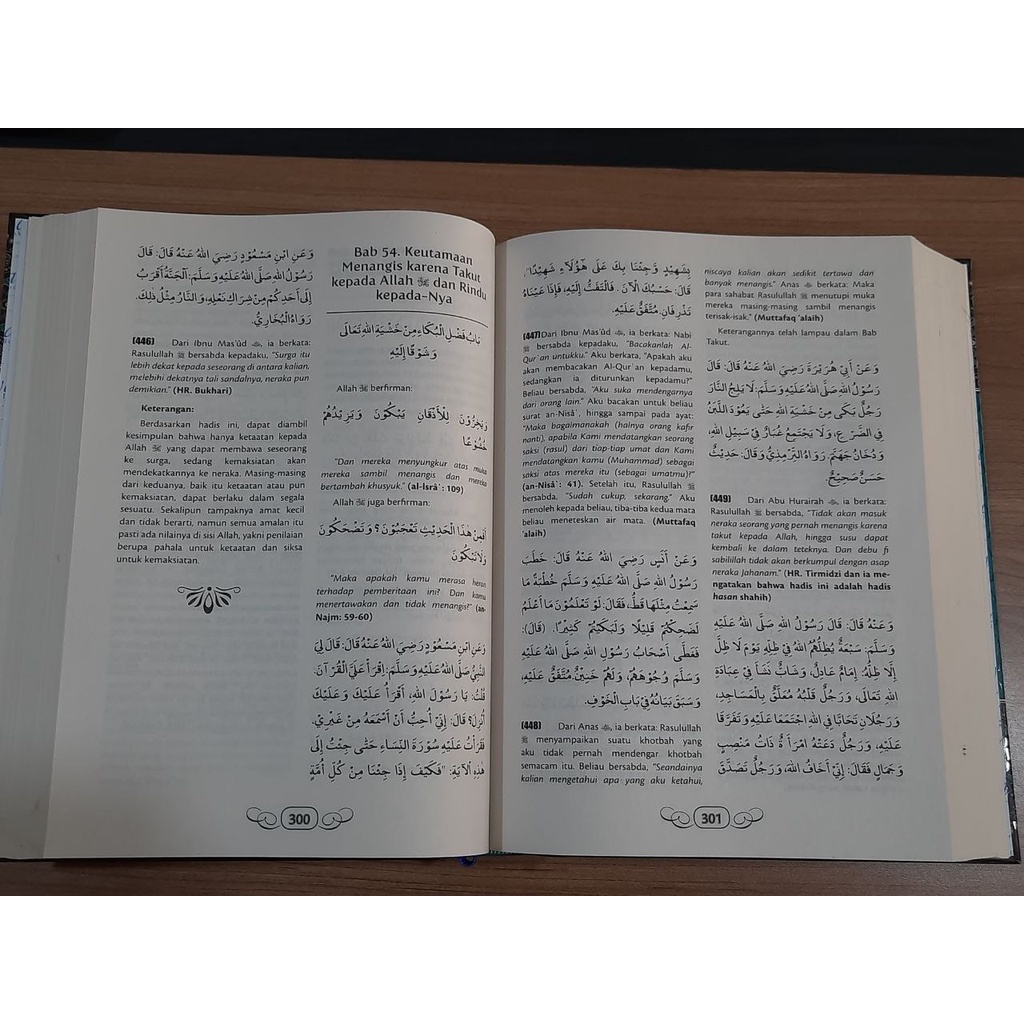 وَعَنِ ابْنِ مَسْعُوْدٍ رَضِيَ اللهُ عَنْهُ قَالَ: قَالَ
رَسُوْلُ اللهِ صَلَّى اللهُ عَلَيْهِ وَسَلَّمَ: اَلْجَنَّةُ أَقْرَبُ
إِلَى أَحَدِكُمْ مِنْ شِرَاكِ نَعْلِهِ، وَالنَّارُ مِثْلُ ذٰلِكَ.
رَوَاهُ الْبُخَارِيُّ.
[446] Dari Ibnu Mas'ûd, ia berkata:
Rasulullah ﷺ bersabda kepadaku, "Surga itu
lebih dekat kepada seseorang di antara kalian,
melebihi dekatnya tali sandalnya, neraka pun
demikian." (HR. Bukhari)
Keterangan:
Berdasarkan hadits ini, dapat diambil
kesimpulan bahwa hanya ketaatan kepada
Allah ﷻ yang dapat membawa seseorang
ke surga, sedang kemaksiatan akan
mendekatkannya ke neraka. Masing-masing
dari keduanya, baik itu ketaatan atau pun
kemaksiatan, dapat berlaku dalam segala
sesuatu. Sekalipun tampaknya amat kecil
dan tidak berarti, namun semua amalan itu
pasti ada nilainya di sisi Allah, yakni penilaian
berupa pahala untuk ketaatan dan siksa
untuk kemaksiatan.
Bab 54. Keutamaan
Menangis karena Takut
kepada Allah ﷻ dan Rindu
kepada-Nya
بَابُ فَضْلِ الْبُكَاءِ مِنْ خَشْيَةِ اللهِ تَعَالَى
وَشَوْقًا إِلَيْهِ
Allah ﷻ berfirman:
وَيَخِرُّوْنَ لِلْأَذْقَانِ يَبْكُوْنَ وَيَزِيْدُهُمْ
خُشُوْعًا
"Dan mereka menyungkur atas muka
mereka sambil menangis dan mereka
bertambah khusyuk." (al-Isrâ`: 109)
Allah ﷻ juga berfirman:
أَفَمِنْ هٰذَا الْحَدِيْثِ تَعْجَبُوْنَ؟ وَتَضْحَكُوْنَ
وَلَا تَبْكُوْنَ
"Maka apakah kamu merasa heran
terhadap pemberitaan ini? Dan kamu
menertawakan dan tidak menangis?" (an-
Najm: 59-60)
وَعَنِ ابْنِ مَسْعُوْدٍ رَضِيَ اللهُ عَنْهُ قَالَ: قَالَ لِيَ
النَّبِيُّ صَلَّى اللهُ عَلَيْهِ وَسَلَّمَ: إِقْرَأْ عَلَيَّ الْقُرْآنَ.
قُلْتُ: يَا رَسُوْلَ اللهِ، أَقْرَأُ عَلَيْكَ وَعَلَيْكَ
أُنْزِلَ؟ قَالَ: إِنِّيْ أُحِبُّ أَنْ أَسْمَعَهُ مِنْ غَيْرِيْ.
فَقَرَأْتُ عَلَيْهِ سُوْرَةَ النِّسَاءِ حَتَّى جِئْتُ إِلَى
هٰذِهِ الْآيَةِ: "فَكَيْفَ إِذَا جِئْنَا مِنْ كُلِّ أُمَّةٍ
300
بِشَهِيْدٍ وَجِئْنَا بِكَ عَلَى هٰؤُلَآءِ شَهِيْدًا".
قَالَ: حَسْبُكَ الْآنَ. فَالْتَفَتُّ إِلَيْهِ، فَإِذَا عَيْنَاهُ
تَذْرِفَانِ. مُتَّفَقٌ عَلَيْهِ.
[447] Dari Ibnu Mas'ûd, ia berkata: Nabi
ﷺ bersabda kepadaku, "Bacakanlah Al-
Qur`an untukku." Aku berkata, "Apakah aku
akan membacakan Al-Qur`an kepadamu,
sedangkan ia diturunkan kepadamu?"
Beliau bersabda, "Aku suka mendengarnya
dari orang lain." Aku bacakan untuk beliau
surat an-Nisâ`, hingga sampai pada ayat:
"Maka bagaimanakah (halnya orang kafir
nanti), apabila Kami mendatangkan seorang
saksi (rasul) dari tiap-tiap umat dan Kami
mendatangkan kamu (Muhammad) sebagai
saksi atas mereka itu (sebagai umatmu)?"
(an-Nisâ`: 41). Setelah itu, Rasulullah ﷺ
bersabda, "Sudah cukup, sekarang." Aku
menoleh kepada beliau, tiba-tiba kedua mata
beliau meneteskan air mata. (Muttafaq
'alaih)
وَعَنْ أَنَسٍ رَضِيَ اللهُ عَنْهُ قَالَ: خَطَبَ
رَسُوْلُ اللهِ صَلَّى اللهُ عَلَيْهِ وَسَلَّمَ خُطْبَةً مَا
سَمِعْتُ مِثْلَهَا قَطُّ، فَقَالَ: لَوْ تَعْلَمُوْنَ مَا أَعْلَمُ
لَضَحِكْتُمْ قَلِيْلًا وَلَبَكَيْتُمْ كَثِيْرًا. (قَالَ):
فَغَطَّى أَصْحَابُ رَسُوْلِ اللهِ صَلَّى اللهُ عَلَيْهِ
وَسَلَّمَ وُجُوْهَهُمْ، وَلَهُمْ خَنِيْنٌ. مُتَّفَقٌ عَلَيْهِ،
وَسَبَقَ بَيَانُهُ فِيْ بَابِ الْخَوْفِ.
[448] Dari Anas, ia berkata: Rasulullah
ﷺ menyampaikan suatu khotbah yang
aku tidak pernah mendengar khotbah
semacam itu. Beliau bersabda, "Seandainya
kalian mengetahui apa yang aku ketahui,
niscaya kalian akan sedikit tertawa dan
banyak menangis." Anas berkata: Maka
para sahabat Rasulullah ﷺ menutupi muka
mereka masing-masing sambil menangis
terisak-isak." (Muttafaq 'alaih)
Keterangannya telah lampau dalam Bab
Takut.
وَعَنْ أَبِيْ هُرَيْرَةَ رَضِيَ اللهُ عَنْهُ قَالَ: قَالَ
رَسُوْلُ اللهِ صَلَّى اللهُ عَلَيْهِ وَسَلَّمَ: لَا يَلِجُ النَّارَ
رَجُلٌ بَكَى مِنْ خَشْيَةِ اللهِ حَتَّى يَعُوْدَ اللَّبَنُ
فِي الضَّرْعِ، وَلَا يَجْتَمِعُ غُبَارٌ فِيْ سَبِيْلِ اللهِ،
وَدُخَانُ جَهَنَّمَ. رَوَاهُ التِّرْمِذِيُّ وَقَالَ: حَدِيْثٌ
حَسَنٌ صَحِيْحٌ.
[449] Dari Abu Hurairah, ia berkata:
Rasulullah ﷺ bersabda, "Tidak akan masuk
neraka seorang yang pernah menangis karena
takut kepada Allah, hingga susu dapat
kembali ke dalam teteknya. Dan debu fi
sabilillah tidak akan berkumpul dengan asap
neraka Jahanam." (HR. Tirmidzi dan ia me-
ngatakan bahwa hadis ini adalah hadis
hasan shahih)
وَعَنْهُ قَالَ: قَالَ رَسُوْلُ اللهِ صَلَّى اللهُ عَلَيْهِ
وَسَلَّمَ: سَبْعَةٌ يُظِلُّهُمُ اللهُ فِيْ ظِلِّهِ يَوْمَ لَا ظِلَّ
إِلَّا ظِلُّهُ: إِمَامٌ عَادِلٌ، وَشَابٌّ نَشَأَ فِيْ عِبَادَةِ
اللهِ تَعَالَى، وَرَجُلٌ قَلْبُهُ مُعَلَّقٌ بِالْمَسَاجِدِ،
وَرَجُلَانِ تَحَابَّا فِي اللهِ اجْتَمَعَا عَلَيْهِ وَتَفَرَّقَا
عَلَيْهِ، وَرَجُلٌ دَعَتْهُ امْرَأَةٌ ذَاتُ مَنْصِبٍ
وَجَمَالٍ فَقَالَ: إِنِّيْ أَخَافُ اللهَ، وَرَجُلٌ تَصَدَّقَ
301